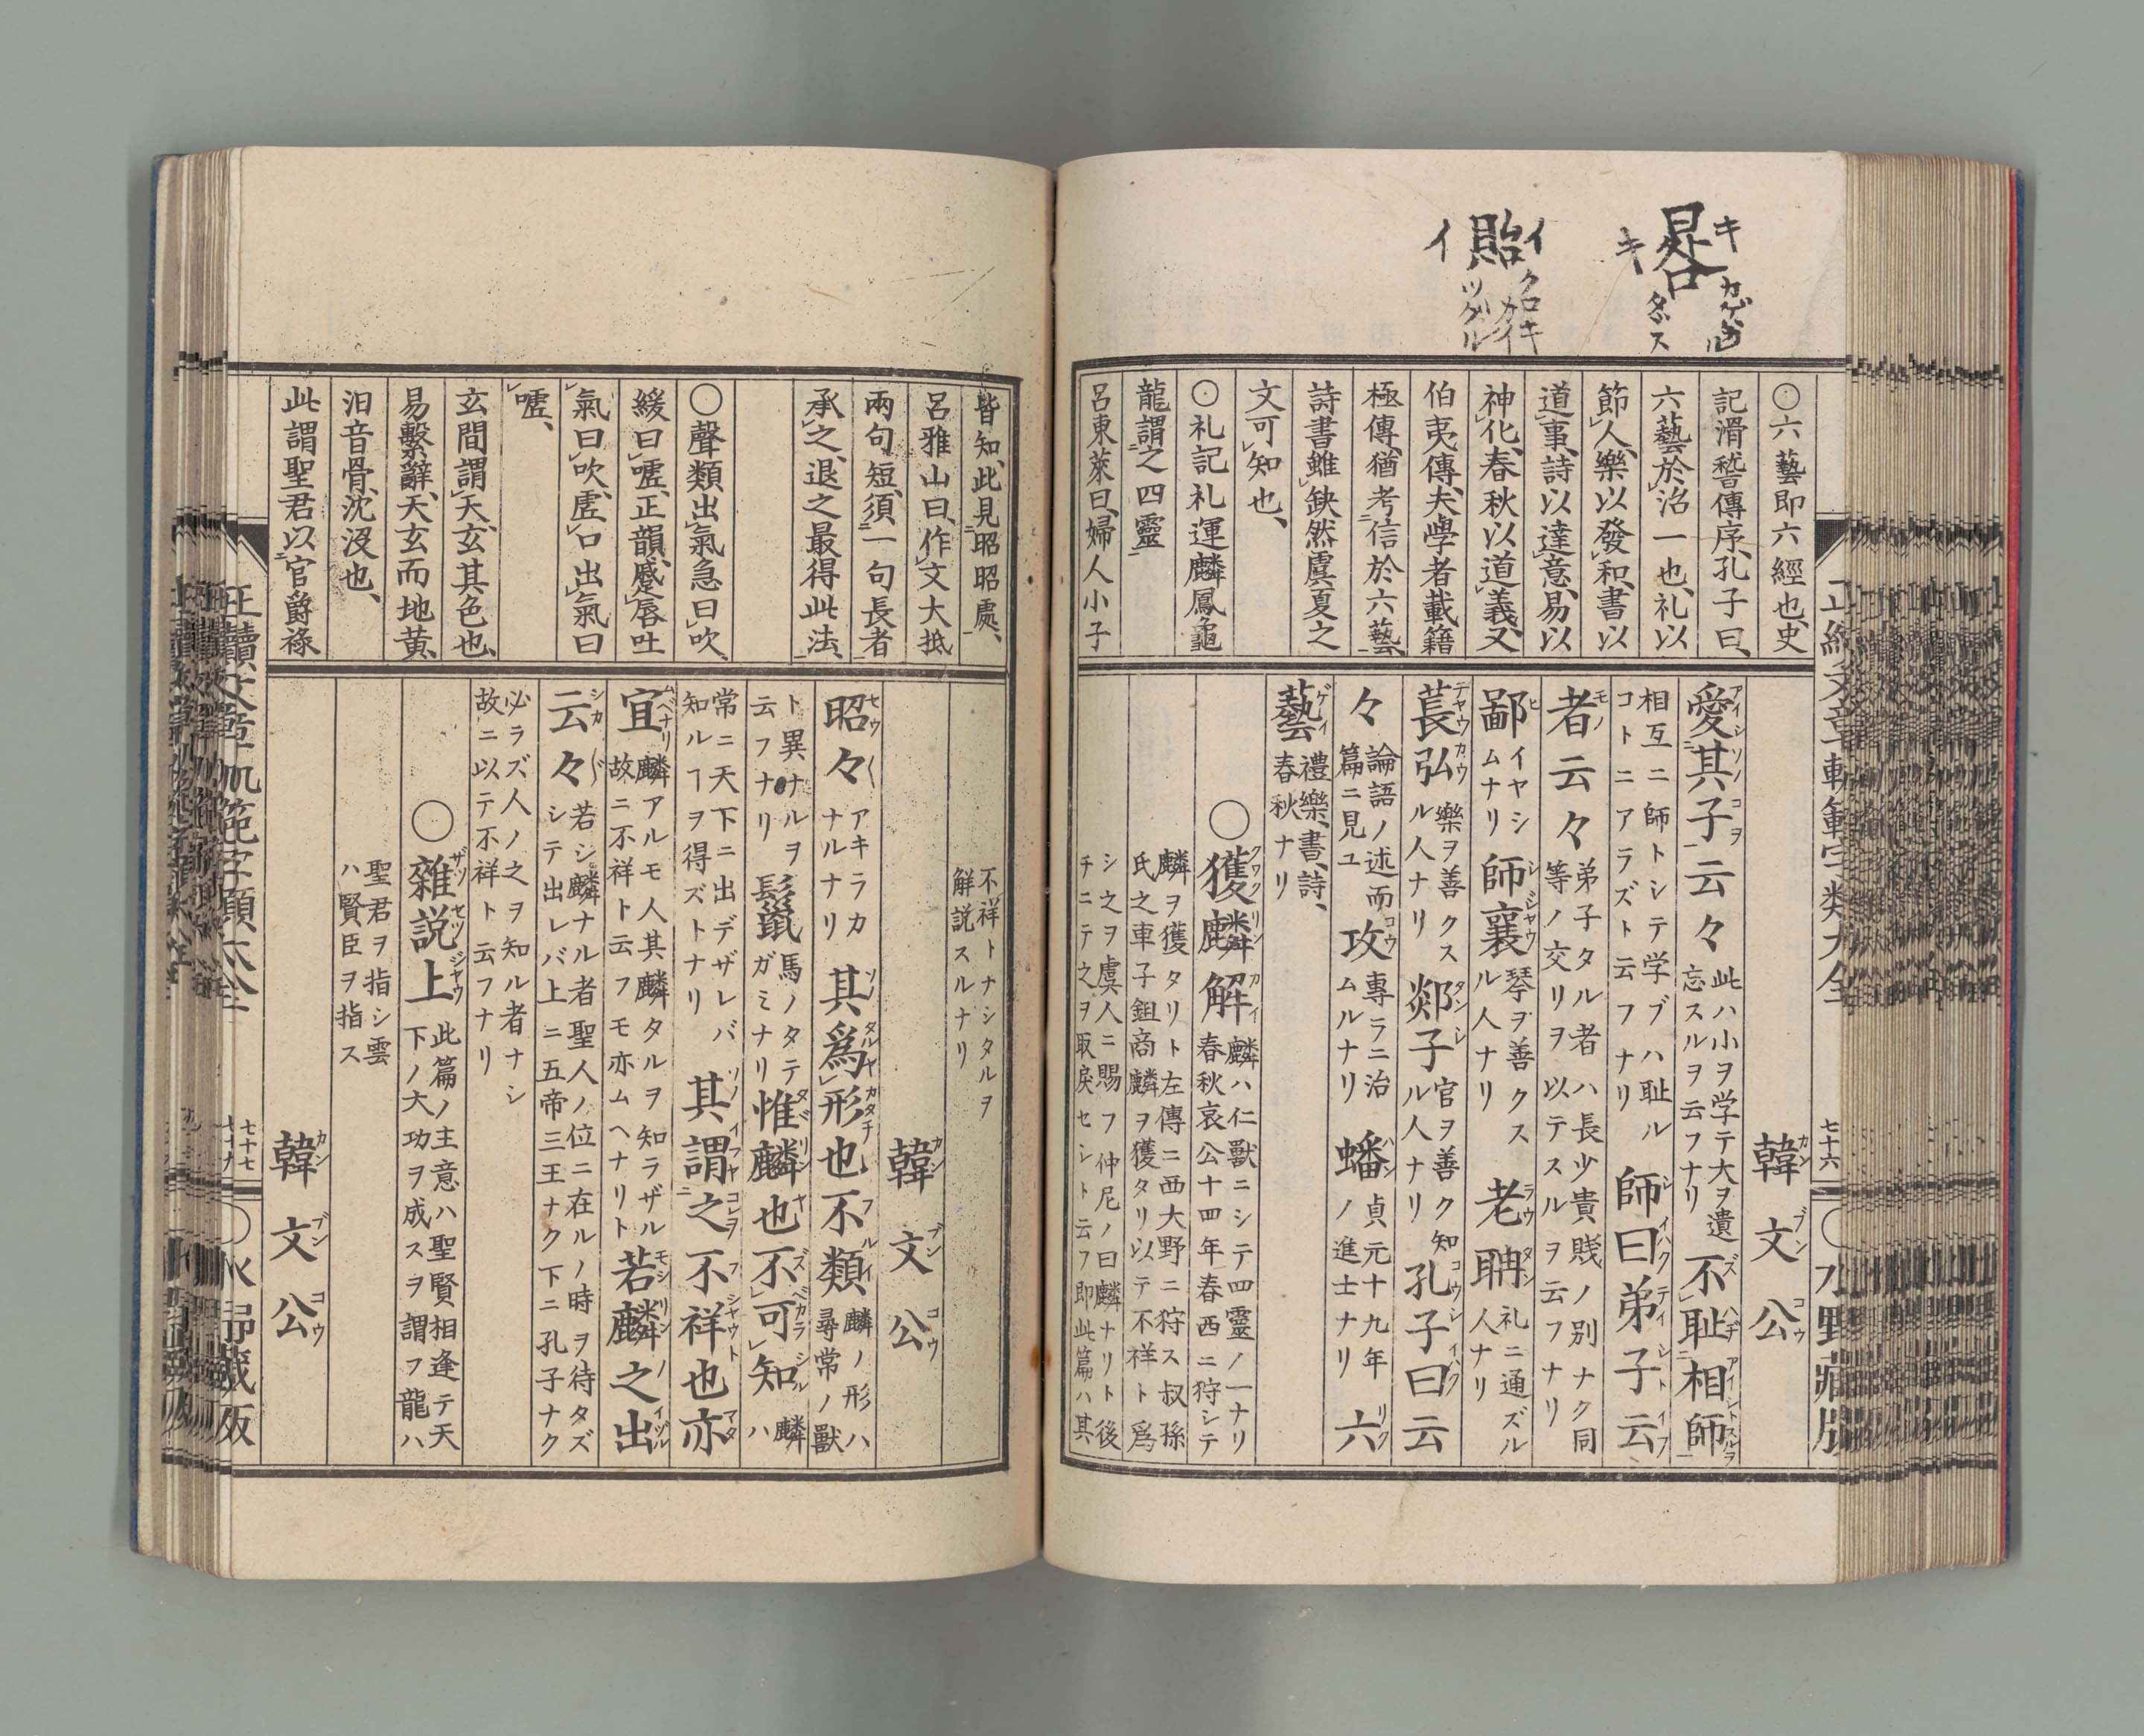 晷 キ カゲ
キ タス
貽 イ クロキカイ
イ ツグル
〇六藝即六經也、史
記滑稽傳序、孔子曰、
六藝於治一也、礼以
節人、樂以發和、書以
道事、詩以達意、易以
神化、春秋以道義、又
伯夷傳、夫學者載籍
極傳、猶考信於六藝、
詩書雖缺然虞夏之
文可知也、
〇礼記礼運麟鳳龜
龍謂之四靈
呂東萊曰、婦人小子
韓文公
愛其子云々 此ハ小ヲ学テ大ヲ遺忘スルヲ云フナリ 不耻相師
相互ニ師トシテ学ブハ耻ルコトニアラズト云フナリ 師曰弟子云
者云々 弟子タル者ハ長少貴賤ノ別ナク同等ノ交リヲ以テスルヲ云フナリ
鄙 イヤシムナリ 師襄 琴ヲ善クスル人ナリ 老聃 礼ニ通ズル人ナリ
萇弘 樂ヲ善クスル人ナリ 郯子 官ヲ善ク知ル人ナリ 孔子曰云
々 論語ノ述而篇ニ見ユ 攻 專ラニ治ムルナリ 蟠 貞元十九年ノ進士ナリ 六
藝 禮樂、書、詩、春秋ナリ
〇獲麟解 麟ハ仁獸ニシテ四靈ノ一ナリ春秋哀公十四年春西ニ狩シテ
麟ヲ獲タリト左傳ニ西大野ニ狩ス叔孫氏之車子鉏商麟ヲ獲タリ以テ不祥ト爲
シ之ヲ虞人ニ賜フ仲尼ノ曰麟ナリト後チニテ之ヲ取戾セシト云フ即此篇ハ其
正續文章軌範字類大全
七十六
水野藏版
皆知、此見昭昭處、
呂雅山曰、作文大抵
兩句短、須一句長者
承之、退之最得此法、
〇聲類、出氣急曰吹、
緩曰嘘、正韻、蹙唇吐
氣曰吹、虛口出氣曰
嘘、
玄間謂天、玄其色也、
易繫辭、天玄而地黄、
汨音骨、沈沒也、
此謂聖君以官爵祿
不祥トナシタルヲ解説スルナリ
韓文公
昭々 アキラカナルナリ 其爲形也不類 麟ノ形ハ尋常ノ獸
ト異ナルヲ云フナリ 鬣 馬ノタテガミナリ 惟麟也不可知 麟ハ
常ニ天下ニ出デザレバ知ルヿヲ得ズトナリ 其謂之不祥也亦
宜 麟アルモ人其麟タルヲ知ラザル故ニ不祥ト云フモ亦ムヘナリト 若麟之出
云々 若シ麟ナル者聖人ノ位ニ在ルノ時ヲ待タズシテ出レバ上ニ五帝三王ナク下ニ孔子ナク
必ラズ人ノ之ヲ知ル者ナシ故ニ以テ不祥ト云フナリ
〇雜説上 此篇ノ主意ハ聖賢相逢テ天下ノ大功ヲ成スヲ謂フ龍ハ
聖君ヲ指シ雲ハ賢臣ヲ指ス
韓文公
正續文章軌範字類大全
七十七
水野藏版